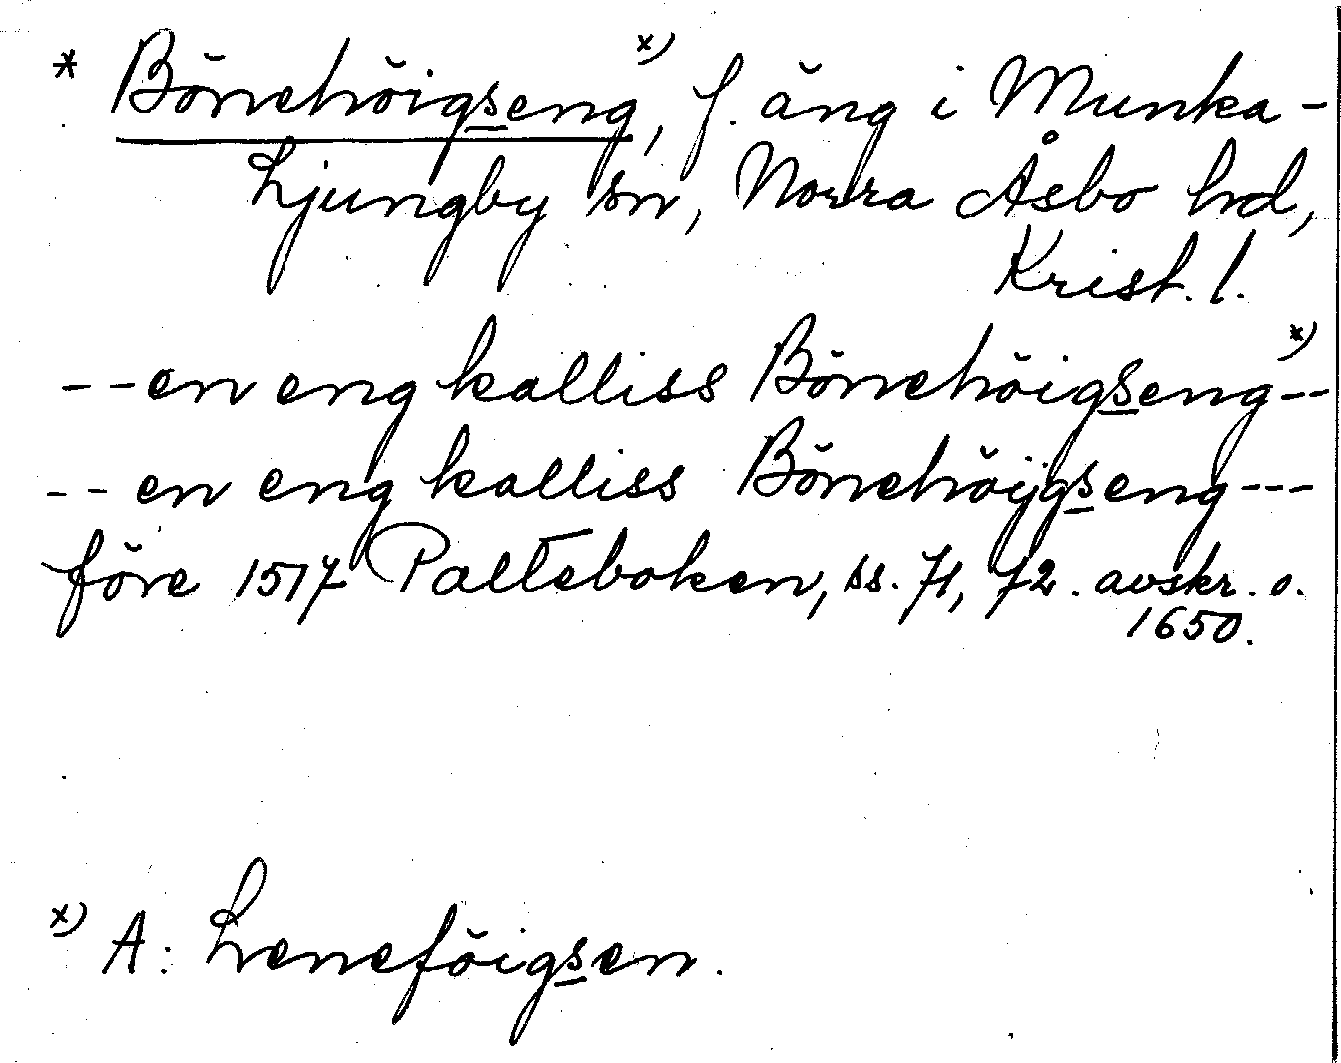 * Bönehöigseng, x) f. äng i Munka-
Ljungby sn, Norra Åsbo hd,
Krist. l.
--en eng kalliss Bönehöigseng-- x)
--en eng kalliss Bönehöÿgseng---
före 1517 Palteboken, ss. 71, 72. avskr. o.
1650.
x) A: Leneföigsen.